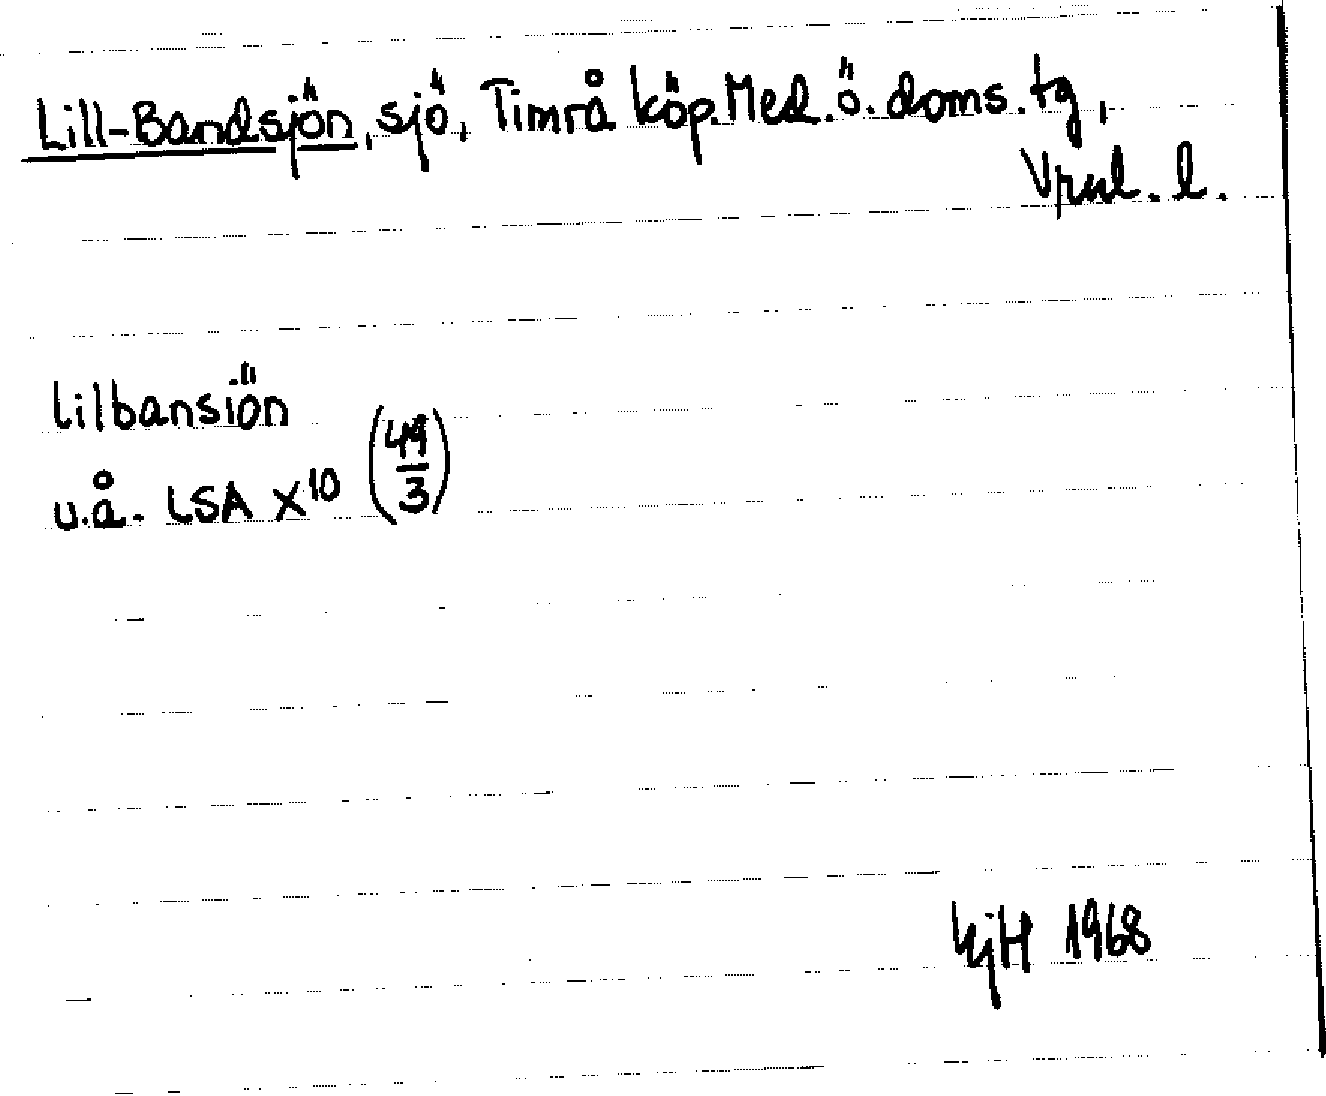 Lill-Bandsjön, sjö, Timrå köp. Med. ö. doms. tg,
Vrnl. l.
Lilbansiön
u.å. LSA X10 (49/3)
KjH 1968